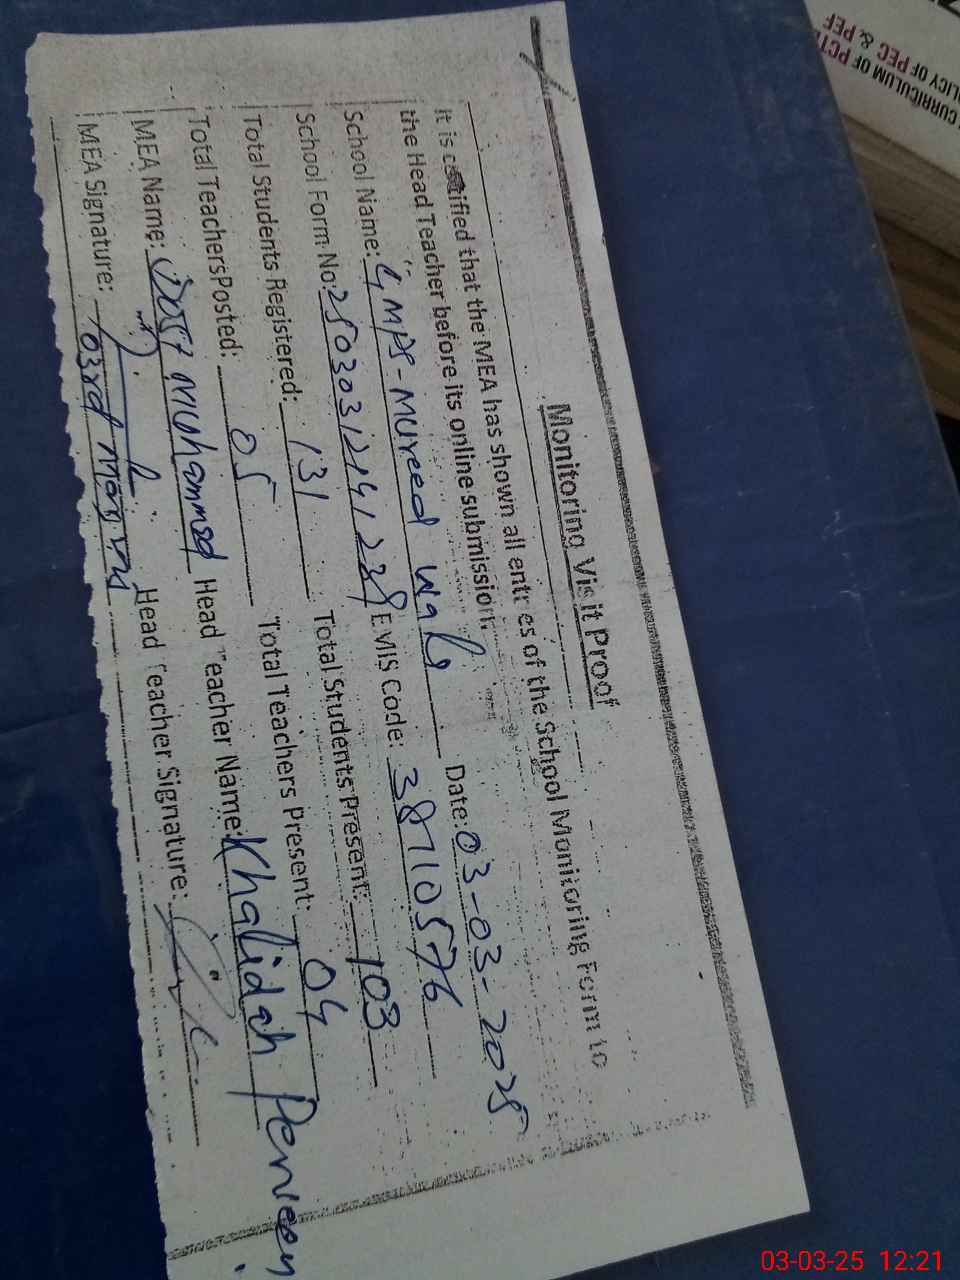 Monitoring Visit Proof
It is certified that the MEA has shown all entries of the School Monitoring Form to
the Head Teacher before its online submission.
School Name: GMPS-Mureed wala Date: 03-03-2025
School Form No: 25030312141239 EMIS Code: 38710576
Total Students Registered: 131 Total Students Present: 103
Total Teachers Posted: 05 Total Teachers Present: 04
MEA Name: Dost Muhammad Head Teacher Name: Khalidah Perveen
MEA Signature: 03rd Head Teacher Signature:
CURRICULUM OF PCT
LICY OF PEC & PEF
03-03-25 12:21